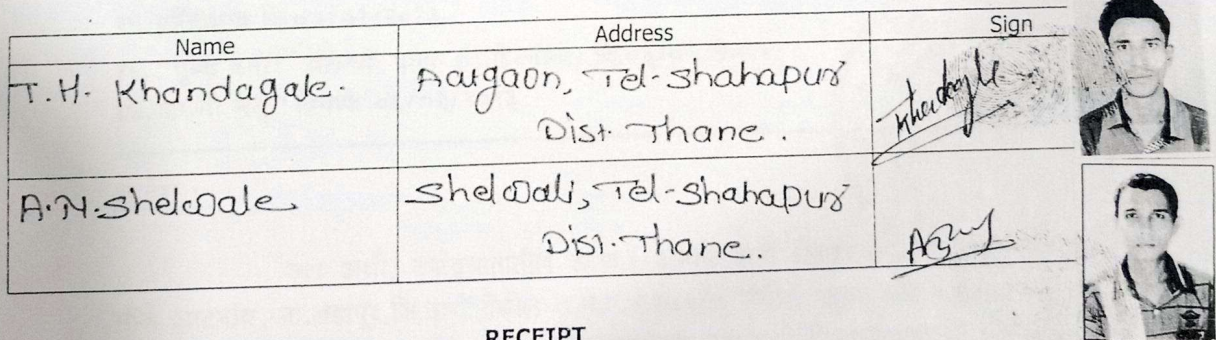 Name Address Sign
T.H. Khandagale. Aatgaon, Tel-Shahapur
Dist. Thane.
Khandagale
A.N.Shelwale Shelwali, Tel-Shahapur
Dist. Thane.
RECEIPT